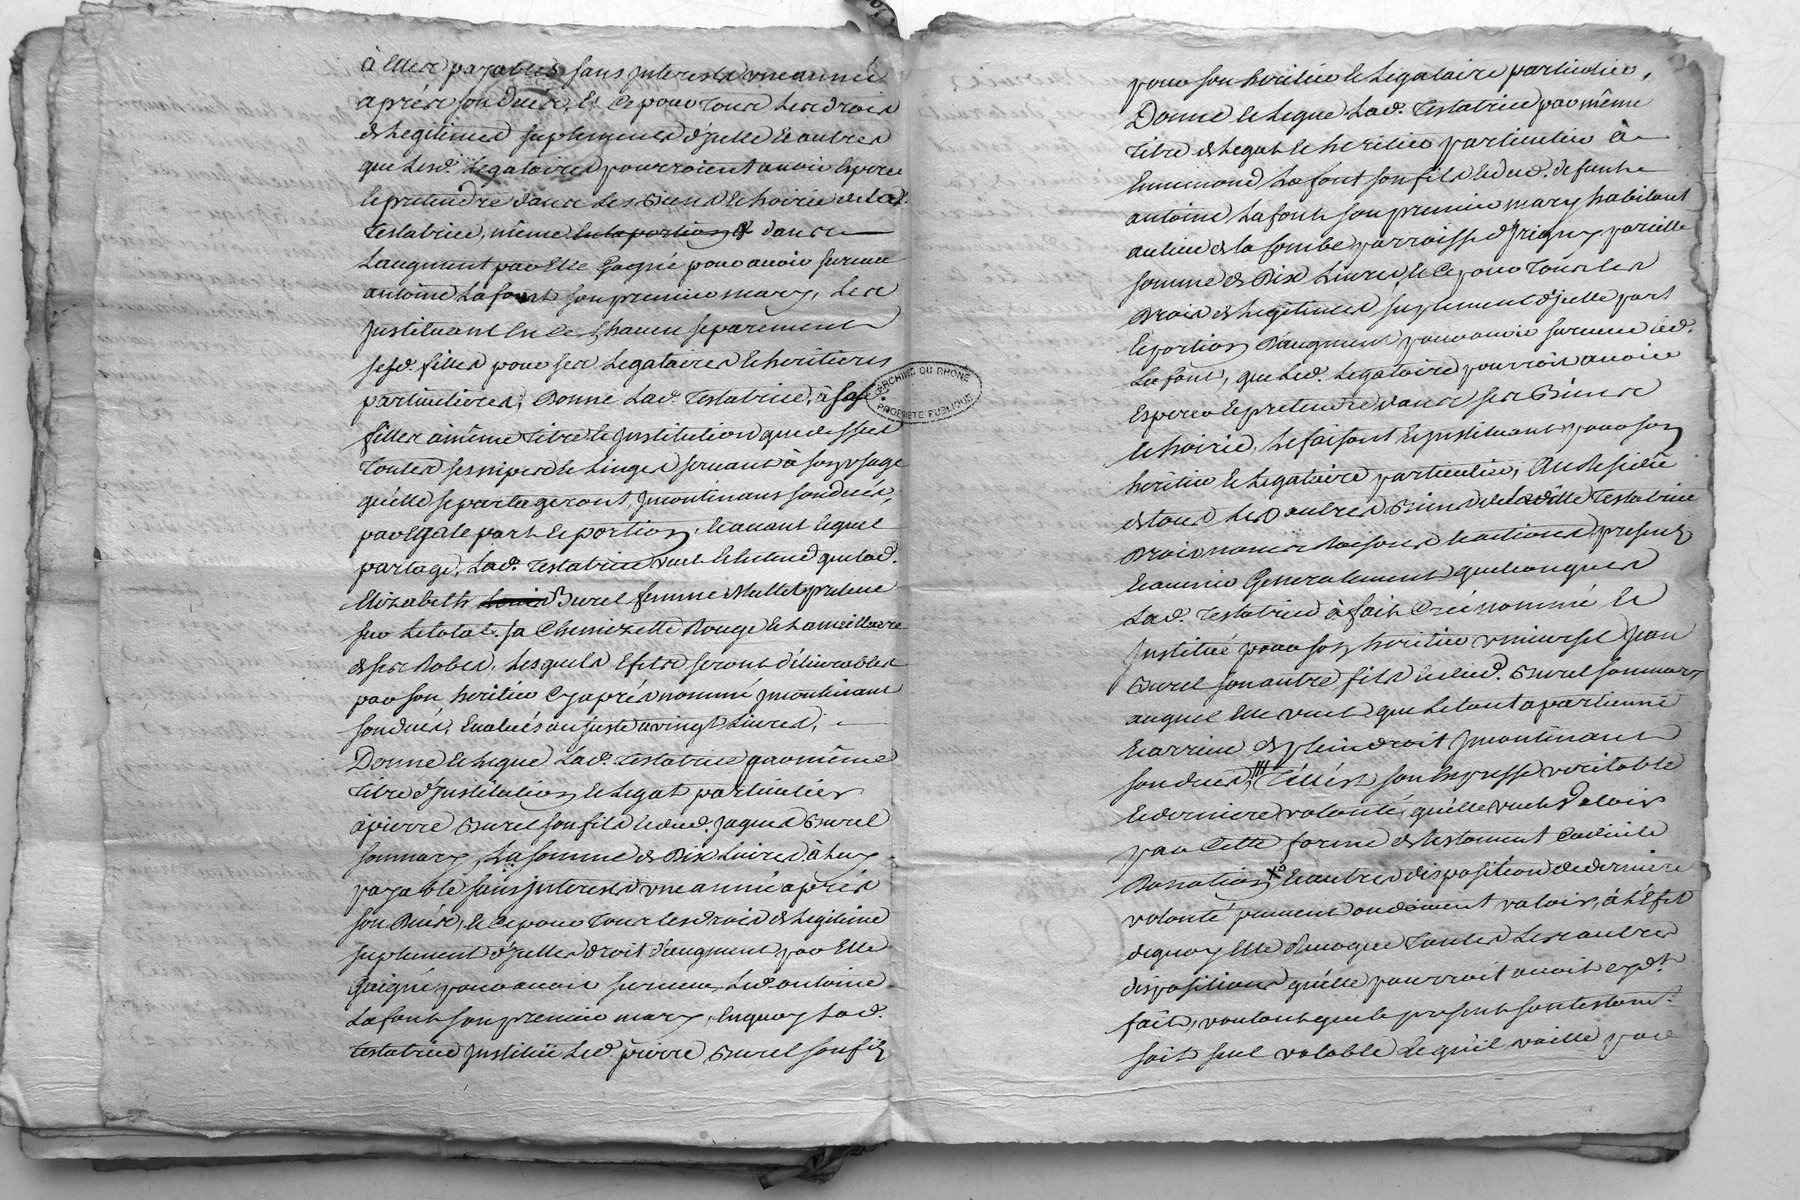 à Elles payables sans jnterests une année
aprés son décés, Et Ce pour Tous Les droits
de Legitimes suplements d'jcelle Et autres
que Lesd. Legataires pourroient avoir Esperer
Et pretendre dans Les Biens Et hoirie de Lad.
Testatrice, même dans
L'augment par Elle Gagné pour avoir survecu
antoine Lafont son premier mary, Les
Jnstituant En Ce Chacun separement
sesd. filles pour ses Legataires Et heritieres
particulieres, Donne Lad. Testatrice, à ses
filles à même titre Et Jnstitution que dessus
Toutes ses nipes Et Linges servant à son usage
qu'elle se partageront jncontinant son décés,
par Egale part Et portion, Et avant Lequel
partage, Lad. Testatrice veut Et Entend que lad.
Elizabeth Burel femme Mallet prelene
sur Le total, sa Chemizette Rouge Et La meilleure
de ses Robes, Lesquels Effets seront délivrables
par son heritier Cy après nommé jncontinant
son décés, Evalués au juste a vingt Livres,
Donne Et Legue Lad. Testatrice par même
titre d'Jnstitution Et Legat particulier
à pierre Burel son fils Et dud. Jaques Burel
son mary, La somme de Dix Livres à Luy
payable sans jnterests une année aprés
son Décés, Et Ce pour Tous Les droits de Legitime
suplement d'jcelle droit d'augment par Elle
Gaigné pour avoir survecu Led. antoine
Lafont son premier mary, En quoy Lad.
Testatrice Jnstitue Led. pierre Burel son fils
ARCHIVES DU RHONE
PROPRIETE PUBLIQUE
pour son heritier Et Legataire particulier,
Donne Et Legue Lad. Testatrice par même
titre de Legat Et heritier particulier à
Ennemond Lafont son fils Et dud. defunt
antoine Lafont son premier mary habitant
au lieu de la Combe parroisse d'Jrigny pareille
somme de Dix Livres, Et Ce pour Tous Les
Droits de Legitimes suplement d'jcelle part
Et portion D'augment pour avoir survecu Led.
Lafont, que Led. Legataire pourroit avoir
Esperer Et pretendre dans ses Biens
Et hoirie, Le faisant Et jnstituant pour son
heritier Et Legataire particulier, Au Residu
de tous Les autres Biens de Laditte Testatrice
Droits noms Raisons Et actions presents
Et avenir Generalement quelconques
Lad. Testatrice à fait Créé nommé Et
Jnstitué pour son heritier universel Jean
Burel son autre fils Et dud. Burel son mary
auquel Elle veut que Le tout apartienne
Et arrive de plein droit jncontinant
son décés, Tel Est son Expresse veritable
Et derniere volonté, qu'elle veut Valoir
par Cette forme de testament Codicile
Donation Et autres disposition de derniere
volonté peuvent ou doivent valoir, à l'Effet
de quoy Elle Revoque Toutes Les autres
dispositions qu'elle pourroit avoir cydt
fait, voulant que le present son testamt
soit seul valable Et qu'il vaille par